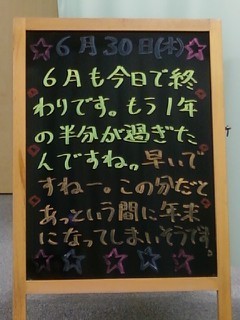 6月30日(木)
6月も今日で終
わりです。もう1年
の半分が過ぎた
んですね。早いで
すねー。この分だと
あっという間に年末
になってしまいそうです。